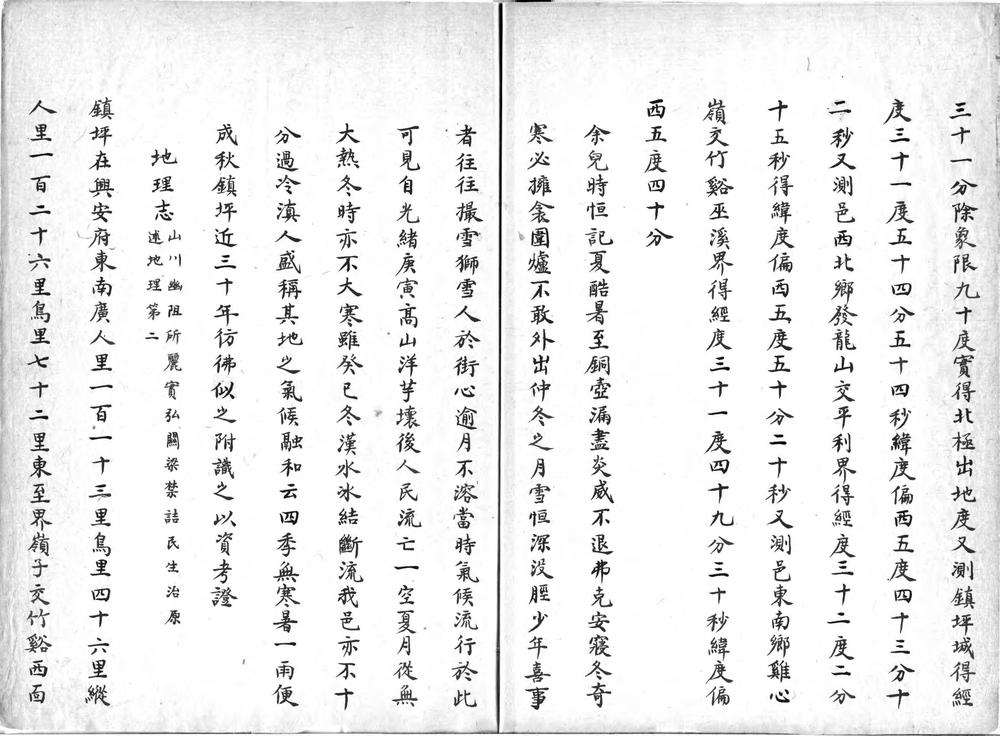 三十一分除象限九十度實得北極出地度又測鎮坪城得經
度三十一度五十四分五十四秒緯度偏西五度四十三分十
二秒又測邑西北鄉發龍山交平利界得經度三十二度二分
十五秒得緯度偏西五度五十分二十秒又測邑東南鄉雞心
嶺交竹谿巫溪界得經度三十一度四十九分三十秒緯度偏
西五度四十分
余兒時恒記夏酷暑至銅壺漏盡炎威不退弗克安寢冬奇
寒必擁衾圍爐不敢外出仲冬之月雪恒深没脛少年喜事
者往往撮雪獅雪人於街心逾月不溶當時氣候流行於此
可見自光緒庚寅高山洋芋壞後人民流亡一空夏月從無
大熱冬時亦不大寒雖癸巳冬漢水冰結斷流我邑亦不十
分過冷滇人盛稱其地之氣候融和云四季無寒暑一雨便
成秋鎮坪近三十年彷彿似之附識之以資考證
地理志
山川幽阻所麗實弘關梁禁詰民生治原
述地理第二
鎮坪在興安府東南廣人里一百一十三里鳥里四十六里縱
人里一百二十六里鳥里七十二里東至界嶺子交竹谿西面